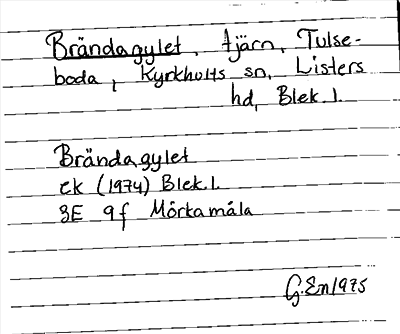 Brändagylet, tjärn, Tulse-
boda, Kyrkhults sn, Listers
hd, Blek.l.
Brändagylet
ek (1974) Blek.l.
3E 9f Mörkamåla
G.En 1975